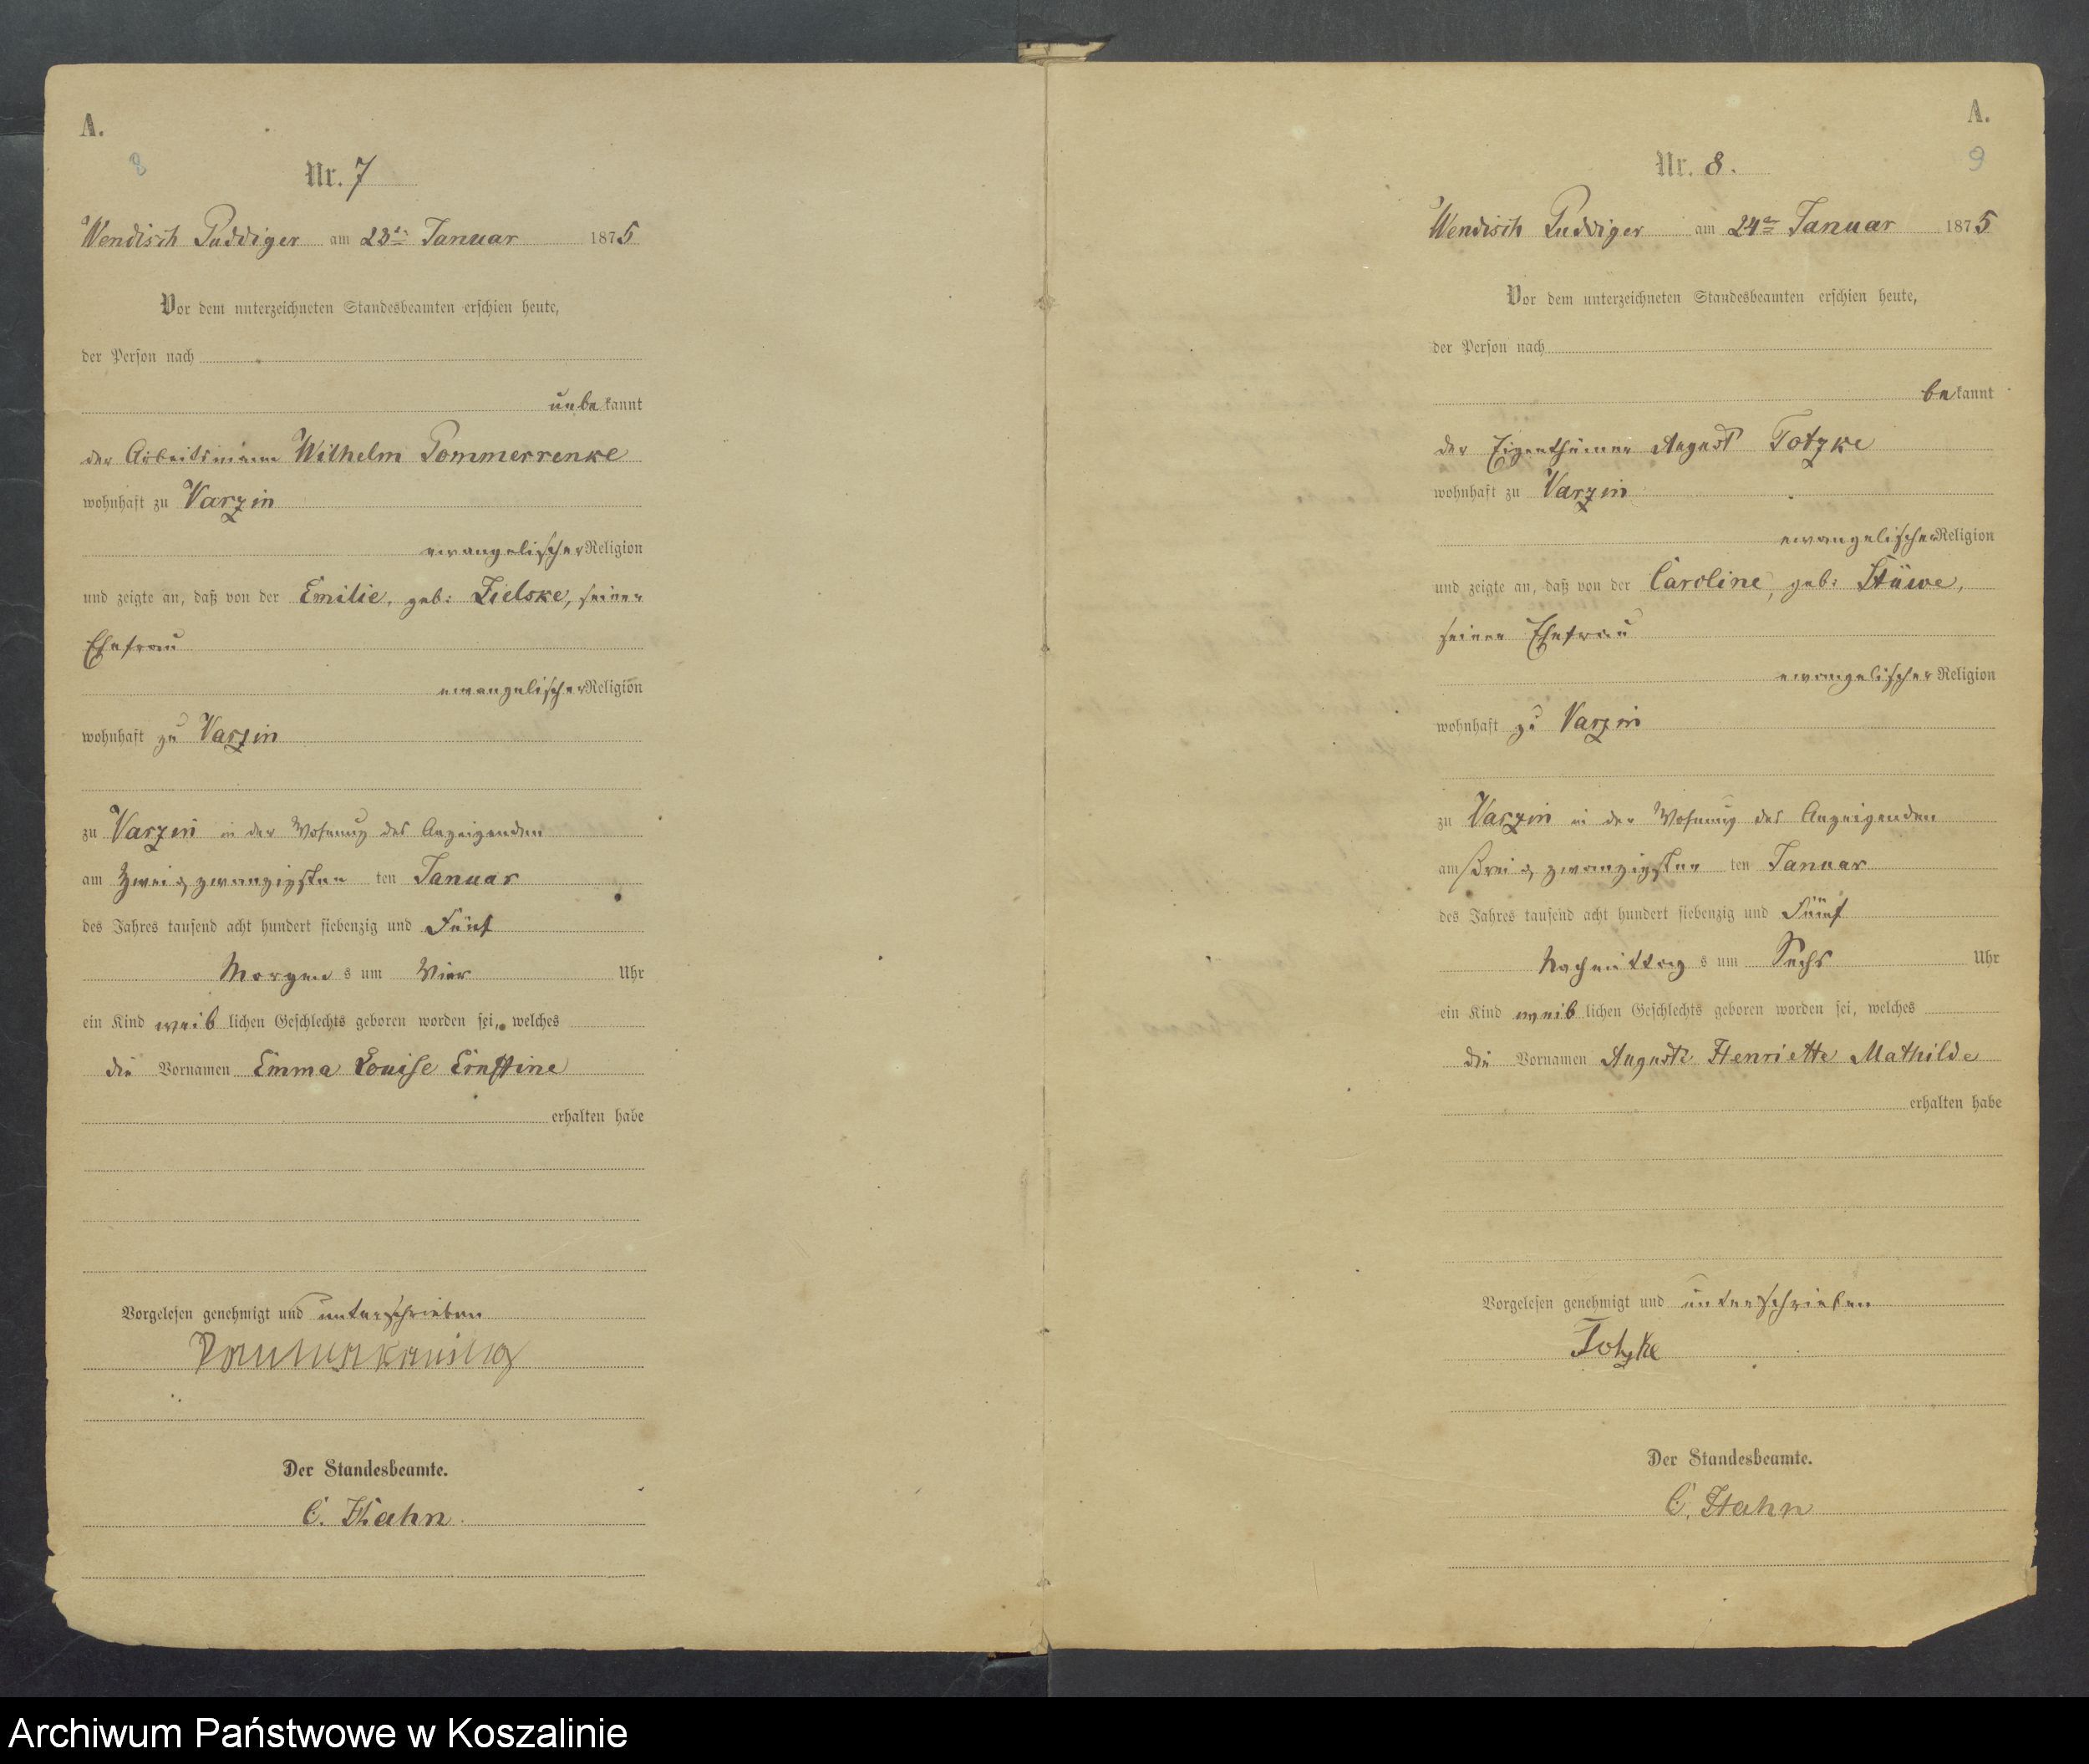 A.
8
Nr. 7
Wendisch Puddiger am 23t. Januar 1875
Vor dem unterzeichneten Standesbeamten erschien heute,
der Person nach
unbekannt
der Arbeitsmann Wilhelm Pommerrenke
wohnhaft zu Varzin
evangelischer Religion
und zeigte an, daß von der Emilie, geb: Zielske, seiner
Ehefrau
evangelischer Religion
wohnhaft zu Varzin
zu Varzin in der Wohnung des Anzeigenden
am Zwei & zwanzigsten ten Januar
des Jahres tausend acht hundert siebenzig und Fünf
Morgens um Vier Uhr
ein Kind weiblichen Geschlechts geboren worden sei, welches
die Vornamen Emma Louise Ernstine
erhalten habe
Vorgelesen genehmigt und unterschrieben
Der Standesbeamte.
C. Hahn.
A.
9
Nr. 8.
Wendisch Puddiger am 24ten Januar 1875
Vor dem unterzeichneten Standesbeamten erschien heute,
der Person nach
bekannt
der Eigenthümer August Totzke
wohnhaft zu Varzin
evangelischer Religion
und zeigte an, daß von der Caroline, geb: Stüwe,
seiner Ehefrau
evangelischer Religion
wohnhaft zu Varzin
zu Varzin in der Wohnung des Anzeigenden
am Drei & zwanzigsten ten Januar
des Jahres tausend acht hundert siebenzig und Fünf
Nachmittags um Sechs Uhr
ein Kind weiblichen Geschlechts geboren worden sei, welches
die Vornamen Auguste Henriette Mathilde
erhalten habe
Vorgelesen genehmigt und unterschrieben
Totzke
Der Standesbeamte.
C. Hahn
Archiwum Państwowe w Koszalinie